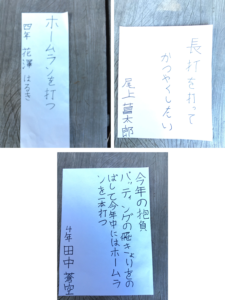 ホームランを打つ
四年 花澤 はるき
長打を打って
かつやくしたい
尾上 太郎
今年の抱負
バッティングの飛きょりをの
ばして今年中にはホームラ
ンを一本打つ
4年 田中